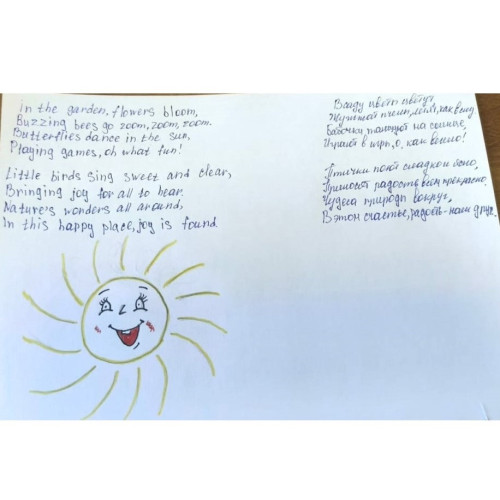 In the garden, flowers bloom,
Buzzing bees go zoom, zoom, zoom.
Butterflies dance in the sun,
Playing games, oh what fun!
Little birds sing sweet and clear,
Bringing joy for all to hear.
Nature's wonders all around,
In this happy place, joy is found.
В саду цветы цветут,
Жужжат пчелы,
Бабочки танцуют на солнце,
Играют в игры, о, как весело!
Птички поют сладко и ясно,
Приносят радость всем прекрасно.
Чудеса природы вокруг,
В этом счастье, радость - наш друг.